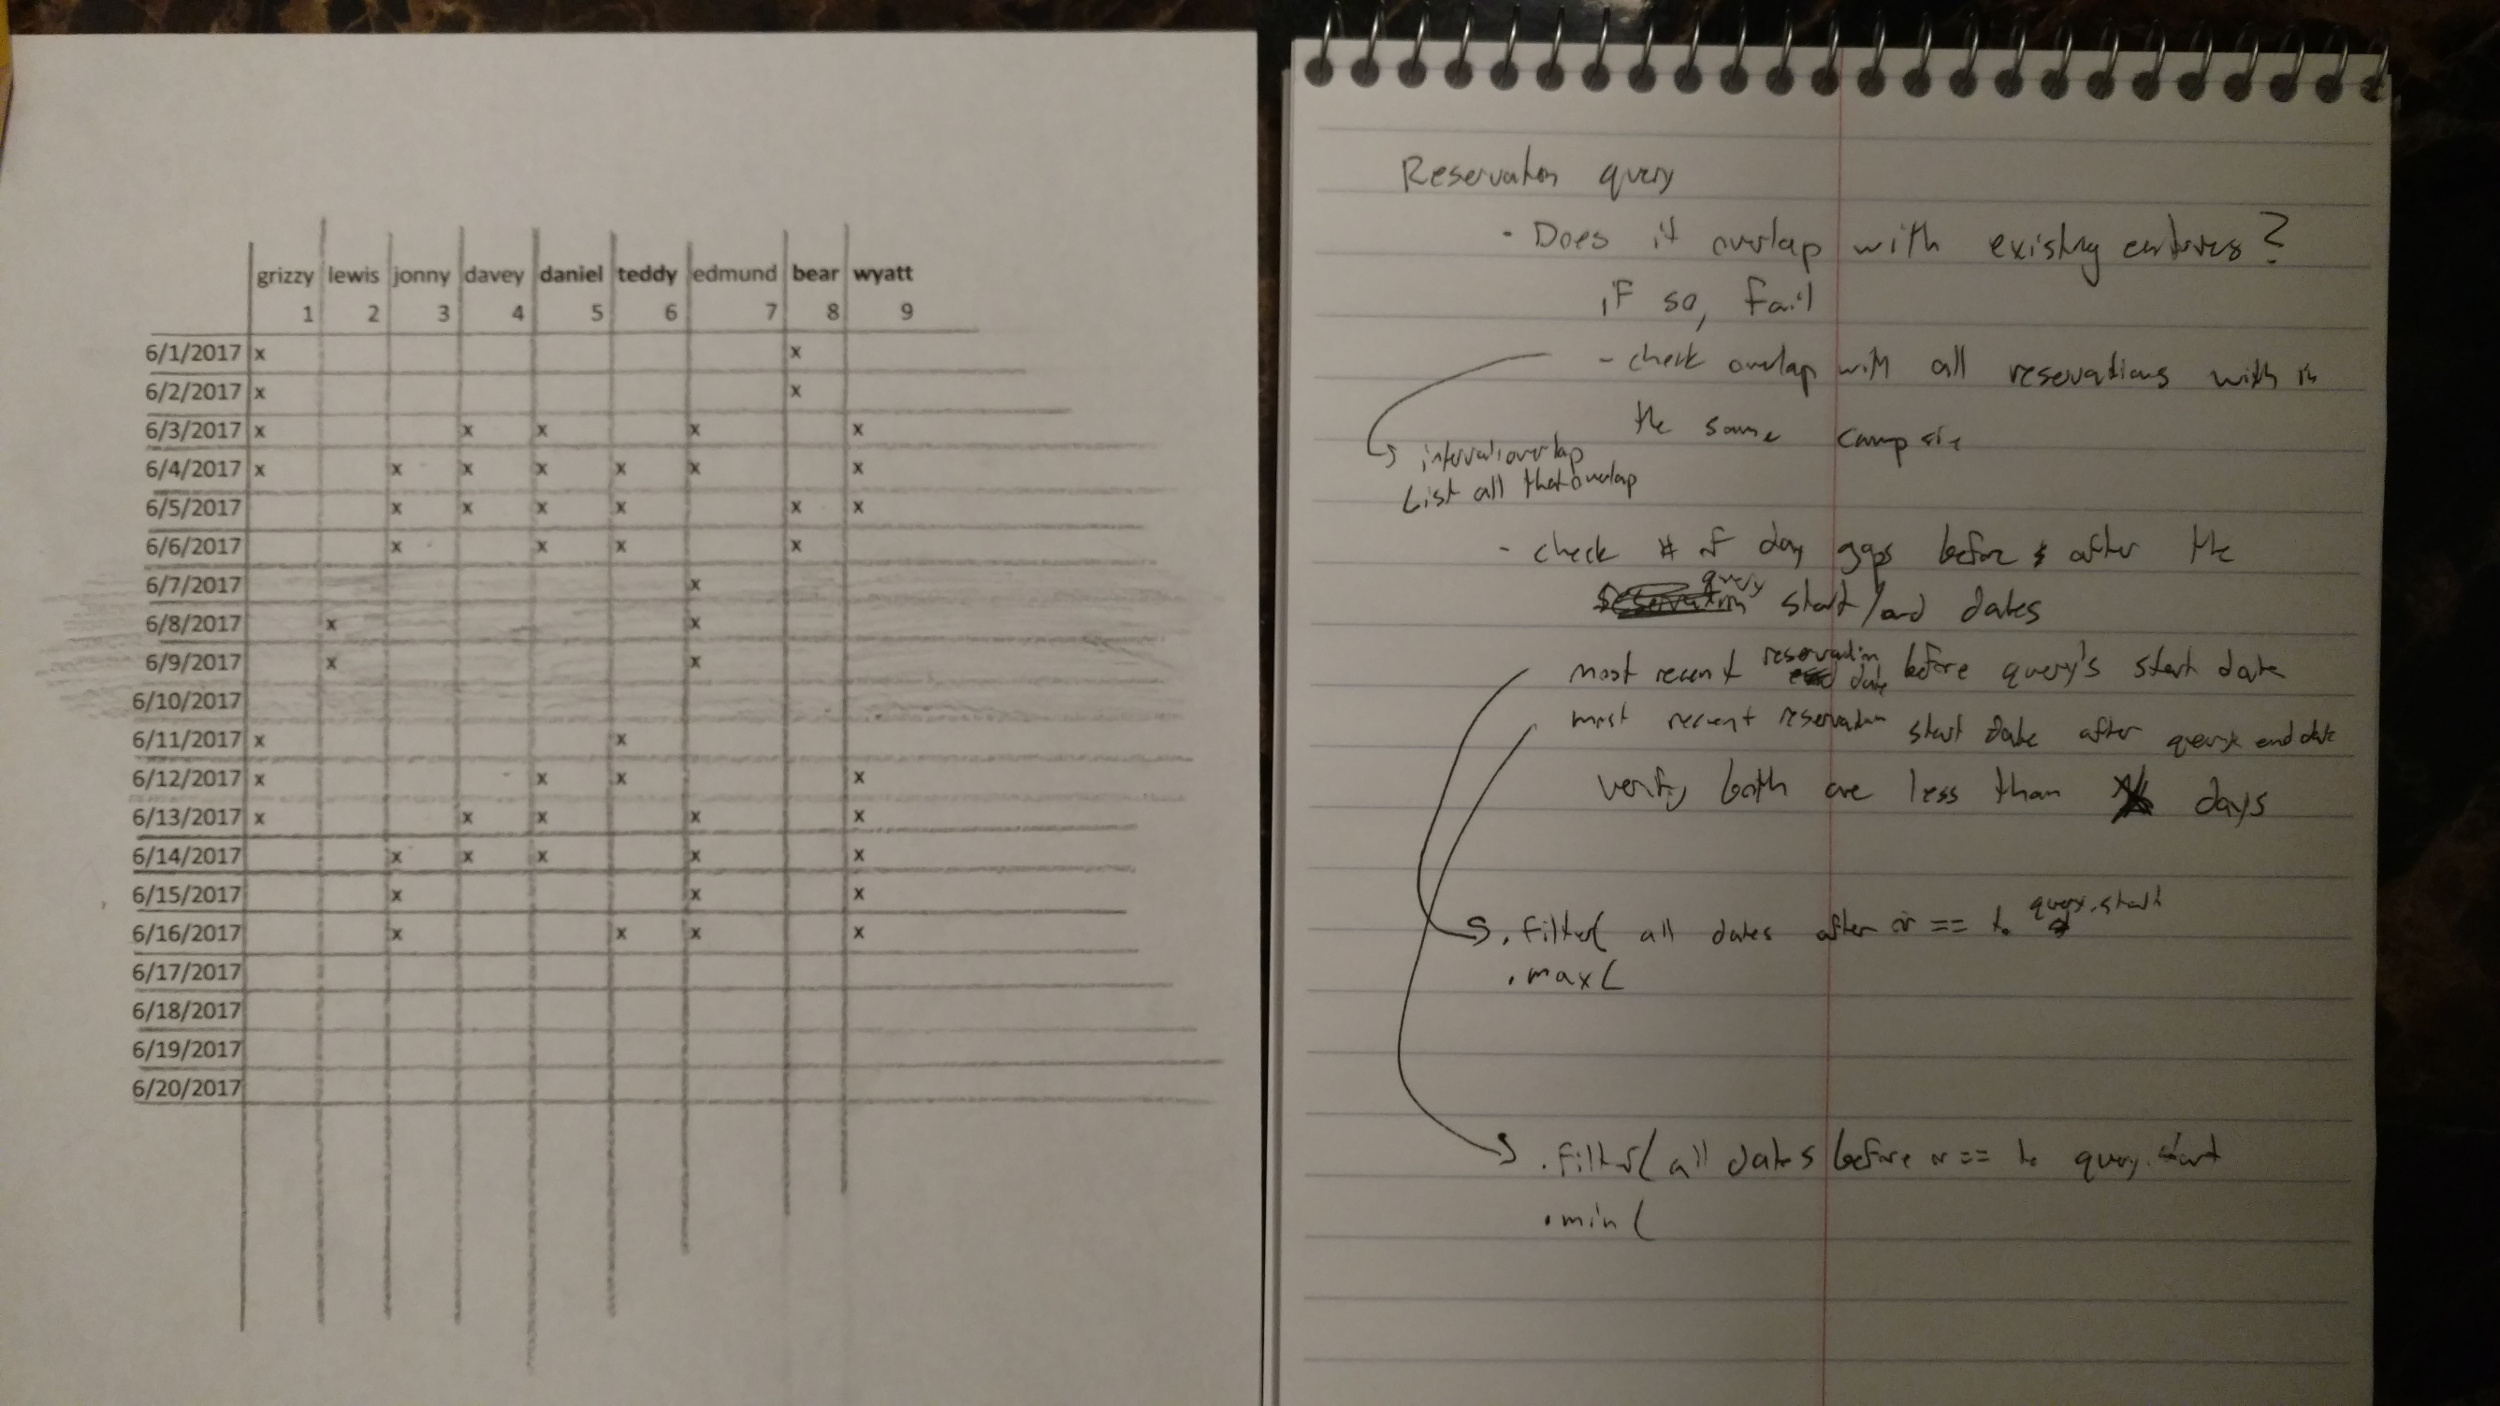 grizzy lewis jonny davey daniel teddy edmund bear wyatt
1 2 3 4 5 6 7 8 9
6/1/2017 x x
6/2/2017 x x
6/3/2017 x x x x x
6/4/2017 x x x x x x x
6/5/2017 x x x x x x
6/6/2017 x x x x
6/7/2017 x
6/8/2017 x x
6/9/2017 x x
6/10/2017
6/11/2017 x x
6/12/2017 x x x x
6/13/2017 x x x x x
6/14/2017 x x x x x
6/15/2017 x x x
6/16/2017 x x x x
6/17/2017
6/18/2017
6/19/2017
6/20/2017
Reservation query
- Does it overlap with existing entries?
if so, fail
- check overlap with all reservations with in
the same campsite
interval overlap
List all that overlap
- check # of day gaps before & after the
query
start/end dates
most recent reservation date before query's start date
most recent reservation start date after query end date
verify both are less than days
.filter( all dates after or == to query.start
.max(
.filter( all dates before or == to query.start
.min(